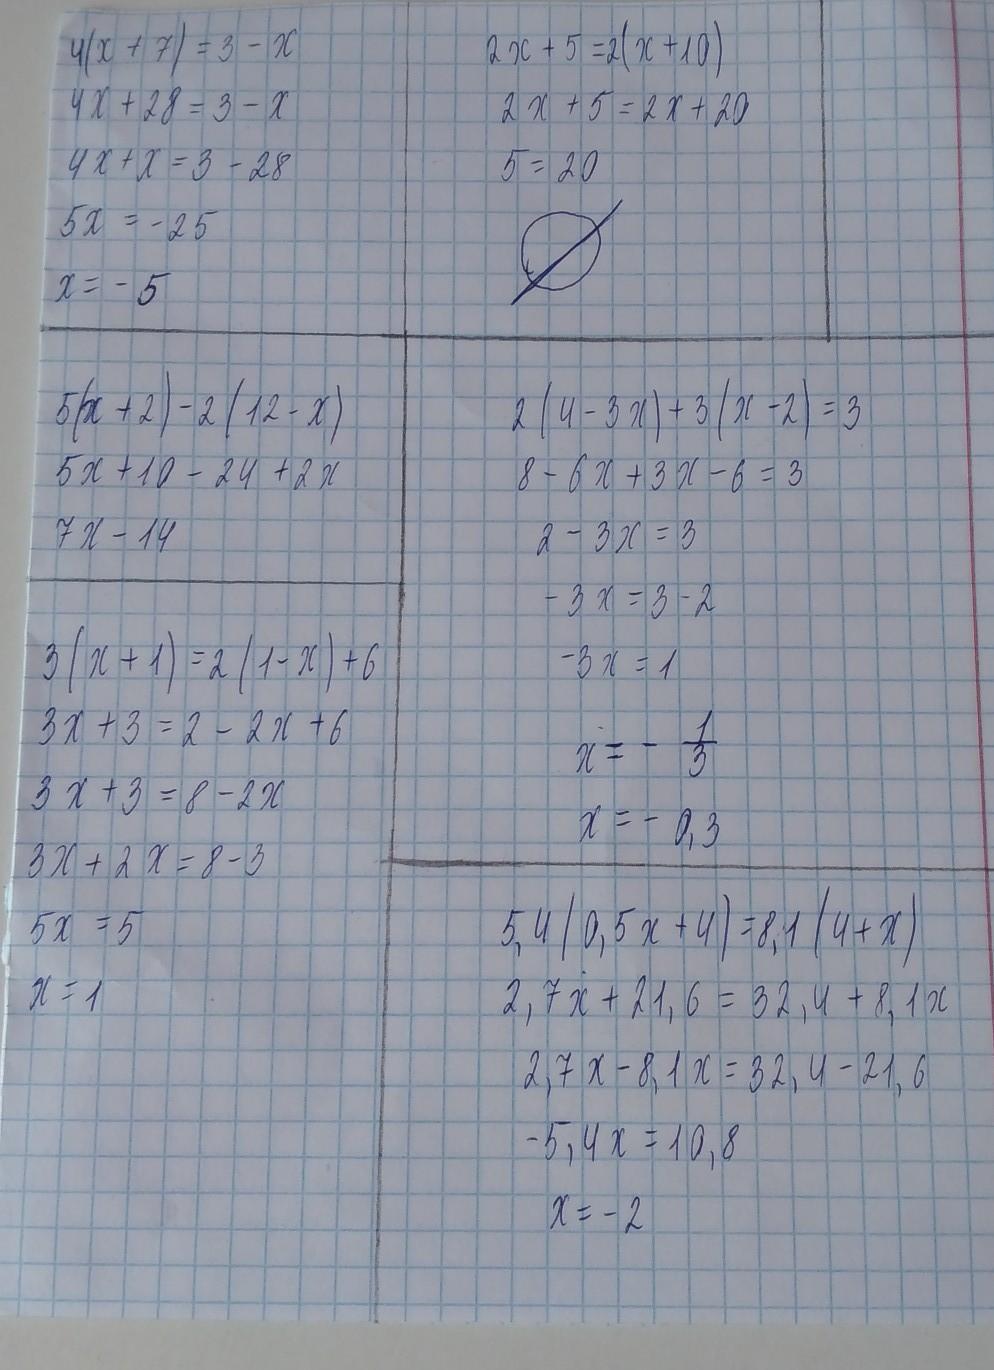 4(x + 7) = 3 - x
4x + 28 = 3 - x
4x + x = 3 - 28
5x = -25
x = - 5
2x + 5 = 2(x + 10)
2x + 5 = 2x + 20
5 = 20
∅
5(x + 2) - 2(12 - x)
5x + 10 - 24 + 2x
7x - 14
2(4 - 3x) + 3(x - 2) = 3
8 - 6x + 3x - 6 = 3
2 - 3x = 3
-3x = 3 - 2
-3x = 1
x = - 1/3
x = - 0,3
3(x + 1) = 2(1 - x) + 6
3x + 3 = 2 - 2x + 6
3x + 3 = 8 - 2x
3x + 2x = 8 - 3
5x = 5
x = 1
5,4(0,5x + 4) = 8,1(4 + x)
2,7x + 21,6 = 32,4 + 8,1x
2,7x - 8,1x = 32,4 - 21,6
-5,4x = 10,8
x = -2